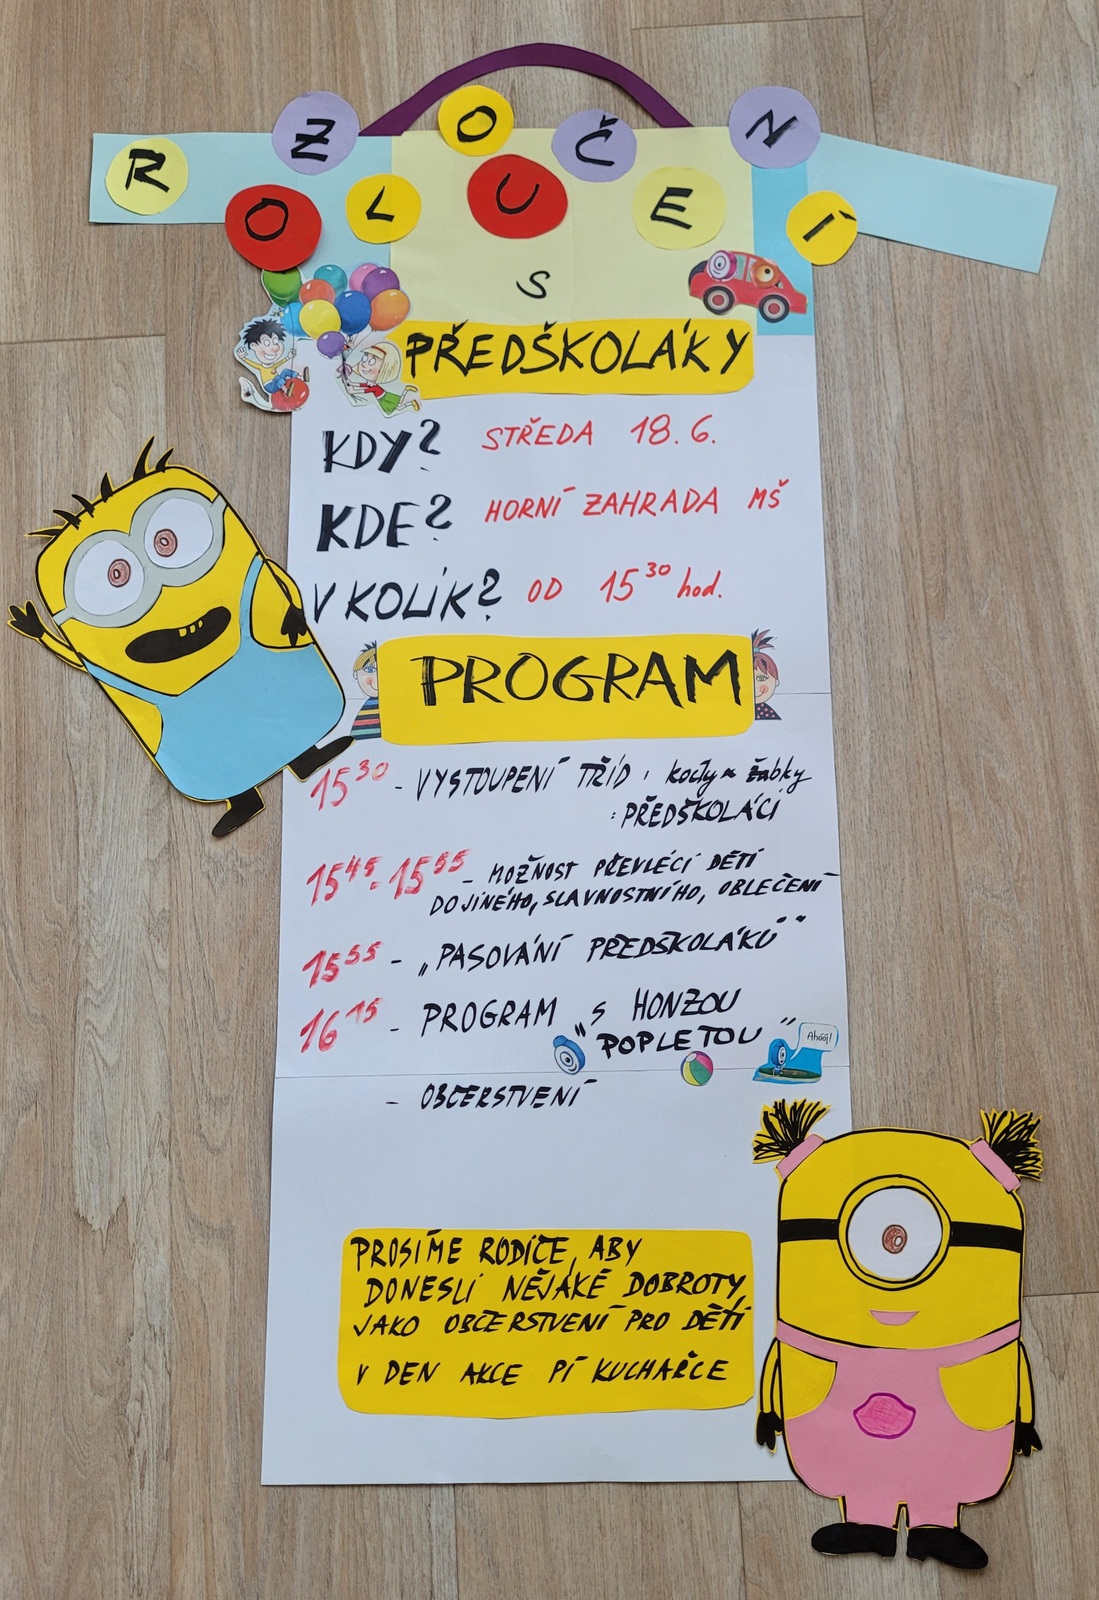 ROZLOUČENÍ
S
PŘEDŠKOLÁKY
KDY? STŘEDA 18.6.
KDE? HORNÍ ZAHRADA MŠ
V KOLIK? OD 15³⁰ hod.
PROGRAM
15³⁰ - VYSTOUPENÍ TŘÍD : kočky a žabky
: PŘEDŠKOLÁCI
15⁴⁵ - 15⁵⁵ - MOŽNOST PŘEVLÉCI DĚTI
DO JINÉHO, SLAVNOSTNÍHO, OBLEČENÍ
15⁵⁵ - „PASOVÁNÍ PŘEDŠKOLÁKŮ"
16¹⁵ - PROGRAM „S HONZOU
POPLETOU"
Ahóój!
- OBČERSTVENÍ
PROSÍME RODIČE, ABY
DONESLI NĚJAKÉ DOBROTY,
JAKO OBČERSTVENÍ PRO DĚTI
V DEN AKCE PÍ KUCHAŘCE